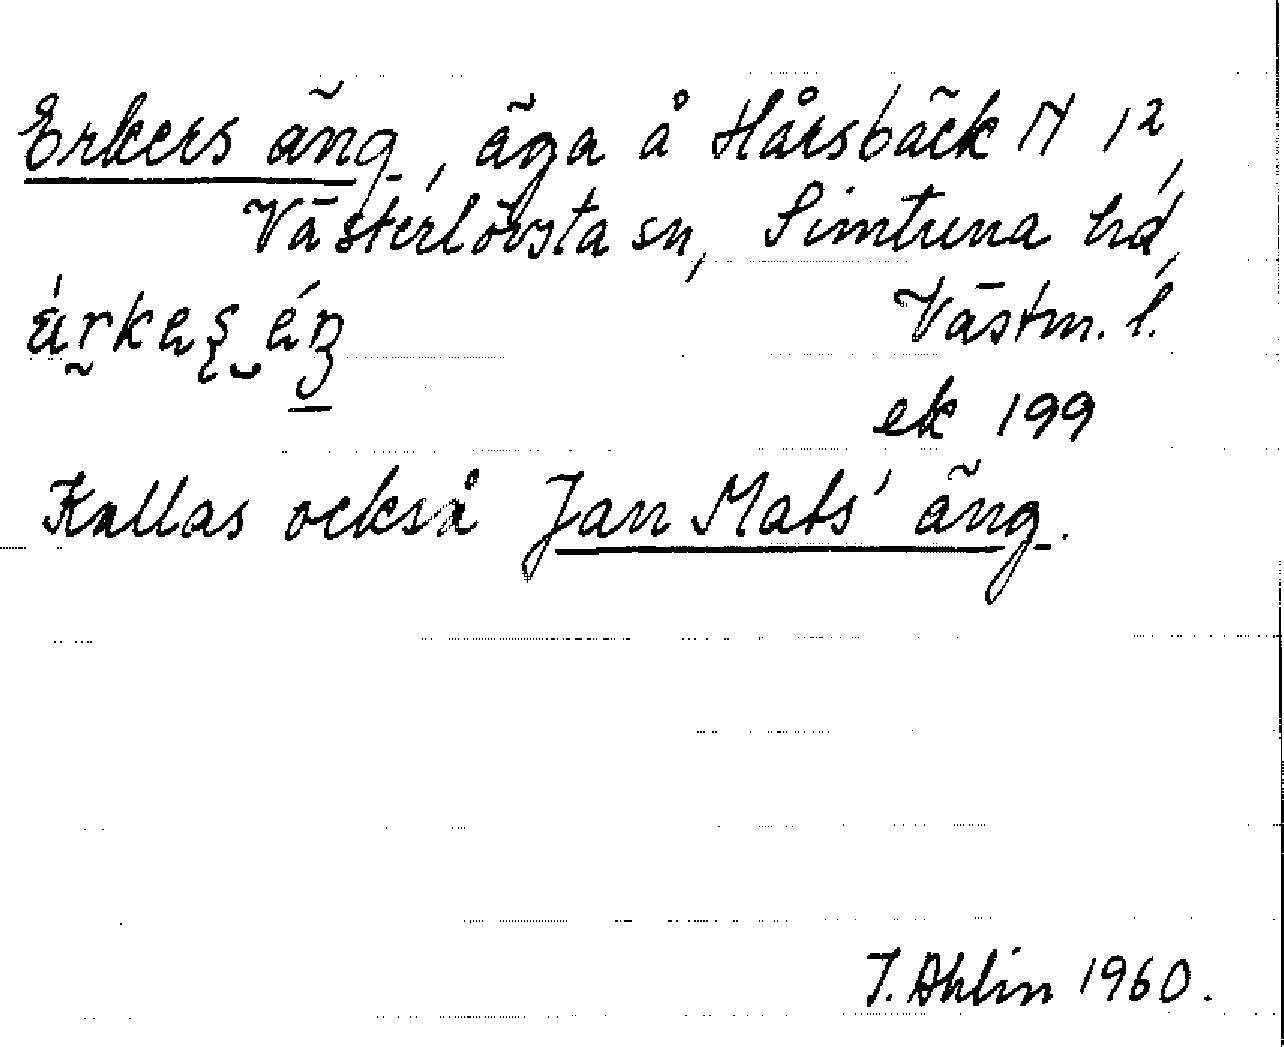 Erkers äng, äga å Hårsbäck N 1²,
Västerlövsta sn, Simtuna hd,
Västm. l.
ek 199
Kallas också Jan Mats' äng.
J. Ahlin 1960.